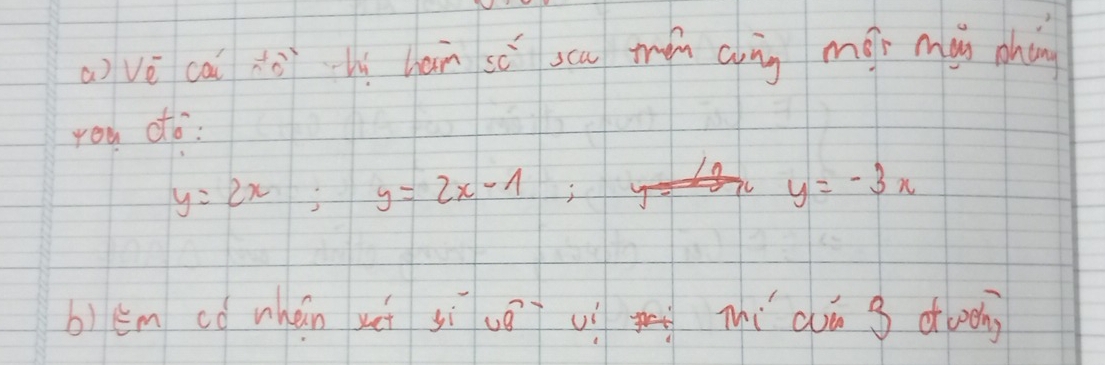 a) Vẽ các đồ thị hàm số sau trên cùng một mặt phẳng
toạ độ:
y = 2x ; y = 2x - 1 ; y = -3x
b) Em có nhận xét gì về vị trí của 3 đường